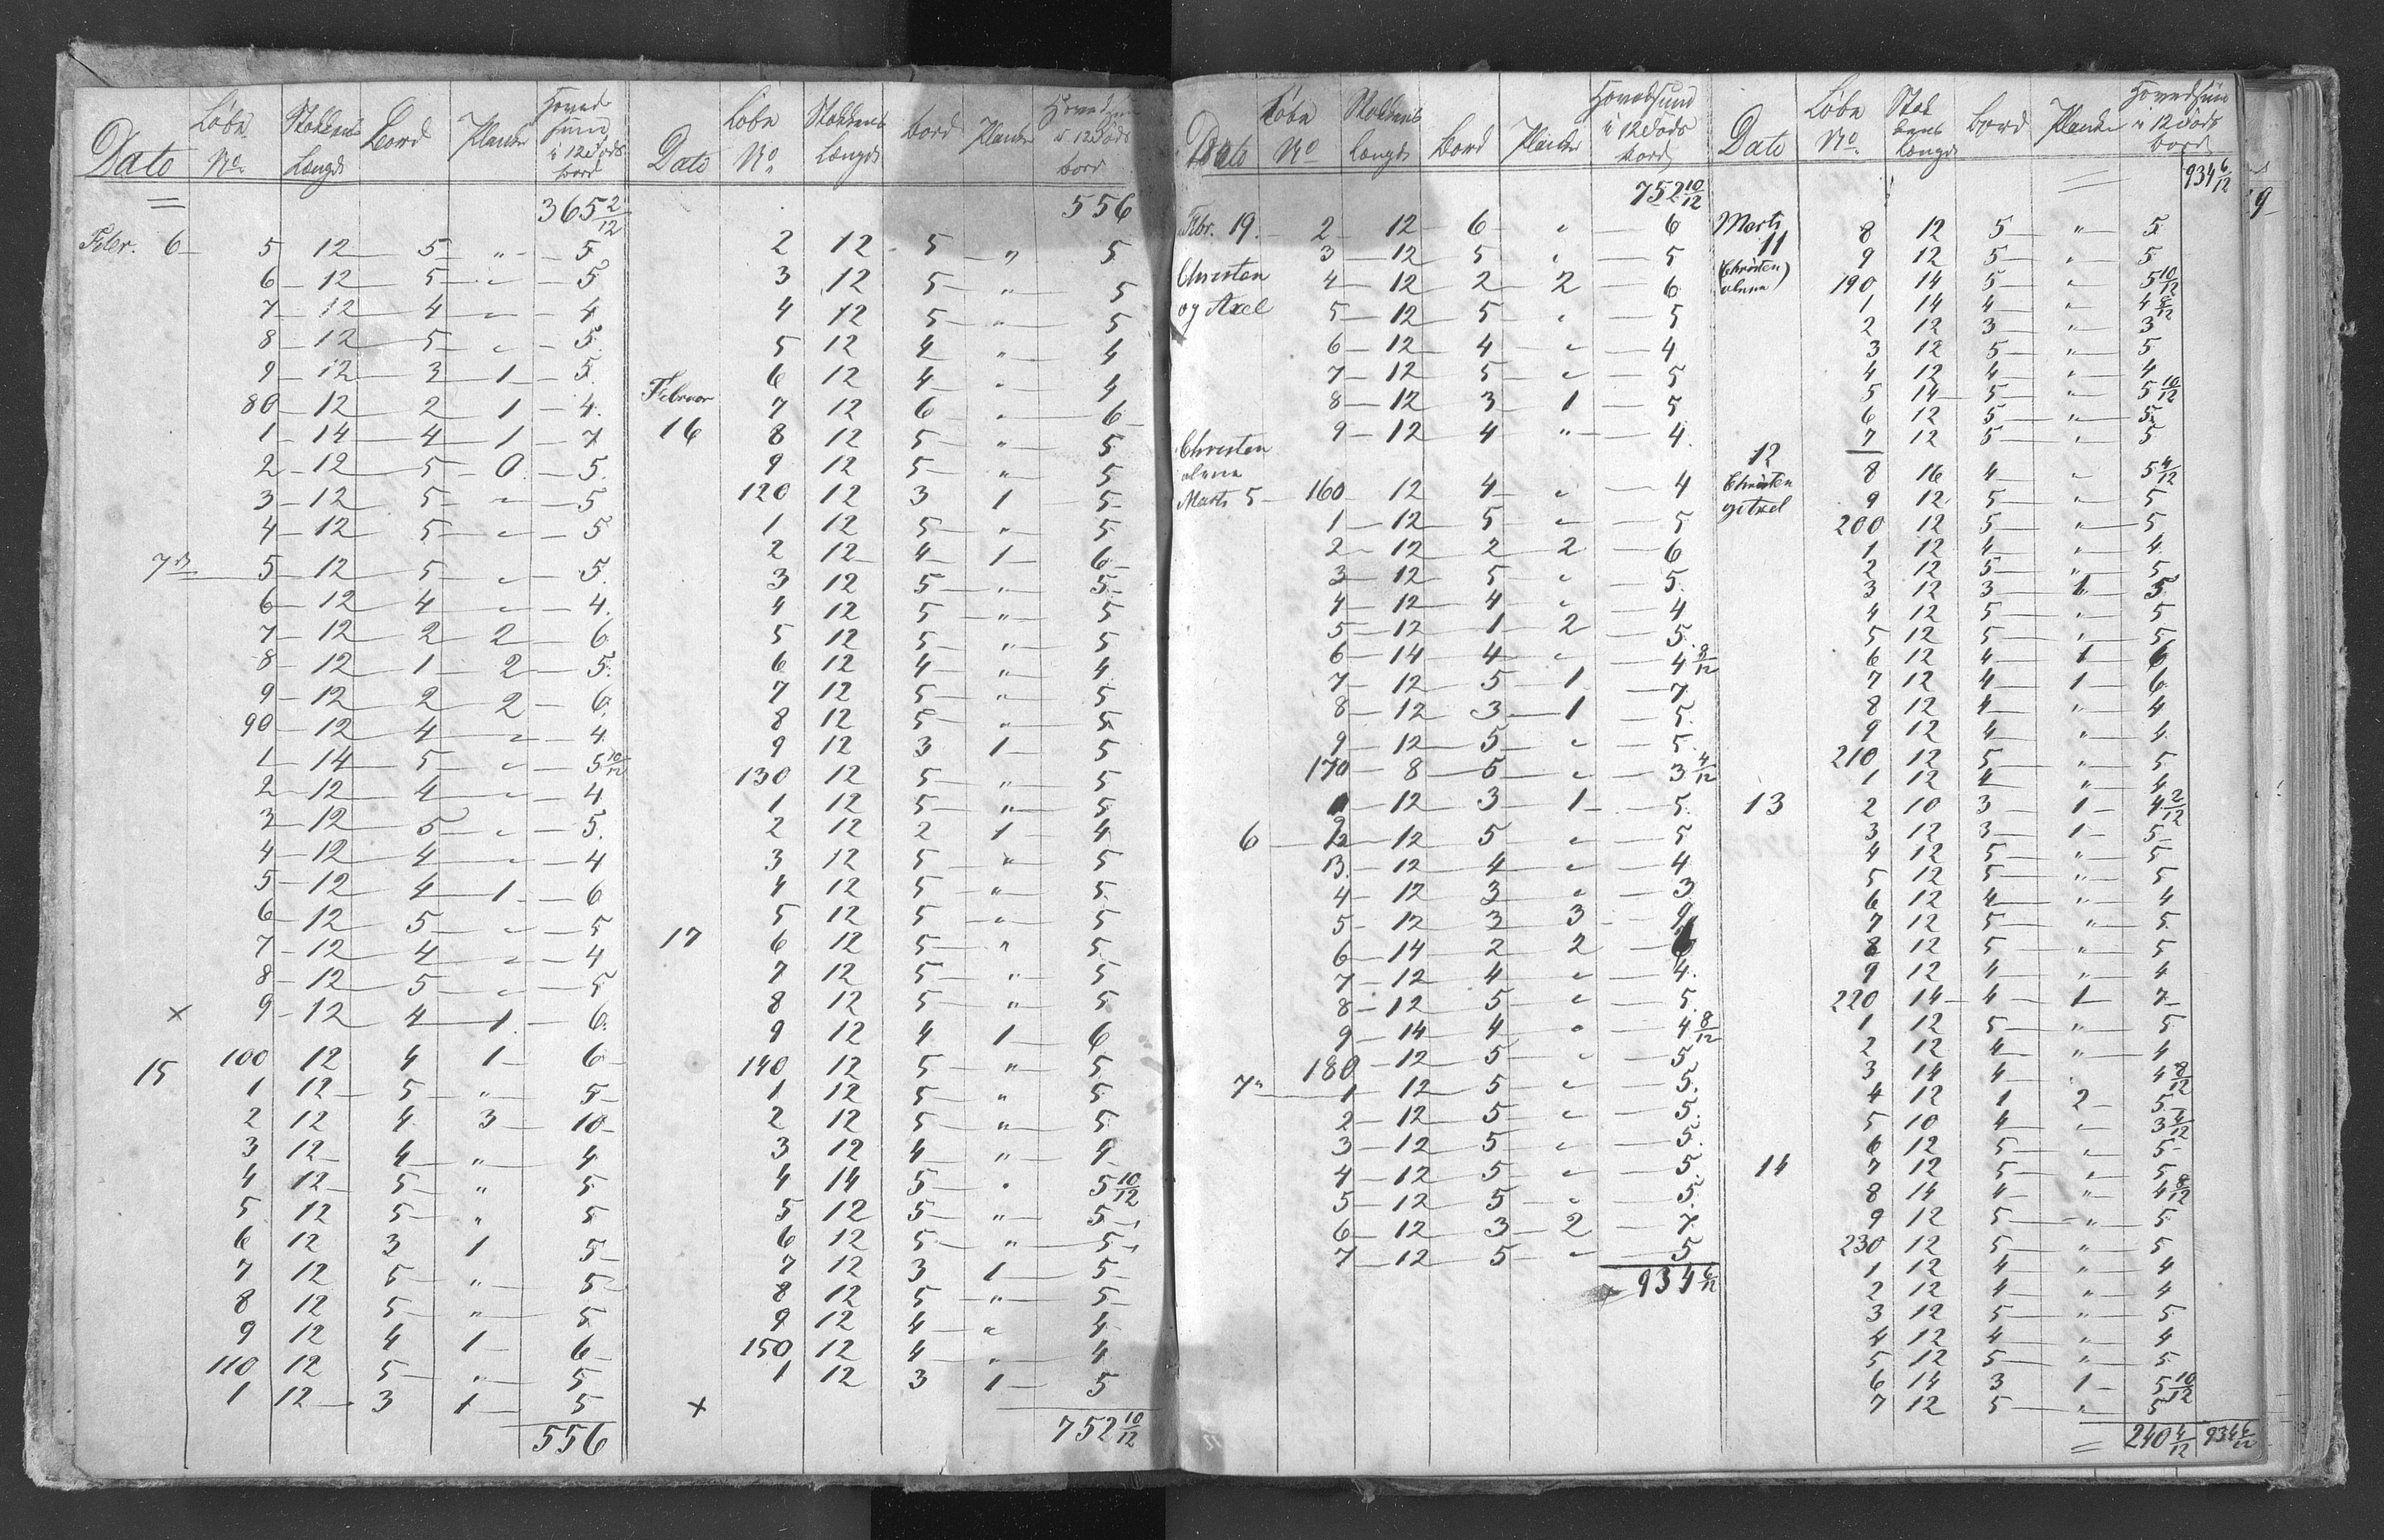 Dato Løbe No. Stokkens Længde Bord Planker Hovedsum i 12 Fods bord
= 365 2/12
Febr. 6 5 12 5 " 5
6 12 5 " 5
7 12 4 " 4
8 12 5 " 5
9 12 3 1 5
80 12 2 1 4
1 14 4 1 7
2 12 5 0 5
3 12 5 " 5
4 12 5 " 5
7de 5 12 5 " 5
6 12 4 " 4
7 12 2 2 6
8 12 1 2 5
9 12 2 2 6
90 12 4 " 4
1 14 5 " 5 10/12
2 12 4 " 4
3 12 5 " 5
4 12 4 " 4
5 12 4 1 6
6 12 5 " 5
7 12 4 " 4
8 12 5 " 5
x 9 12 4 1 6
15 100 12 4 1 6
1 12 5 " 5
2 12 4 3 10
3 12 4 " 4
4 12 5 " 5
5 12 5 " 5
6 12 3 1 5
7 12 5 " 5
8 12 5 " 5
9 12 4 1 6
110 12 5 " 5
1 12 3 1 5
556
Dato Løbe No. Stokkens Længde bord Planker Hovedsum i 12 Fods bord
556
2 12 5 " 5
3 12 5 " 5
4 12 5 " 5
5 12 4 " 4
6 12 4 " 4
Februar 7 12 6 " 6
16 8 12 5 " 5
9 12 5 " 5
120 12 3 1 5
1 12 5 " 5
2 12 4 1 6
3 12 5 " 5
4 12 5 " 5
5 12 5 " 5
6 12 4 " 4
7 12 5 " 5
8 12 5 " 5
9 12 3 1 5
130 12 5 " 5
1 12 5 " 5
2 12 2 1 4
3 12 5 " 5
4 12 5 " 5
5 12 5 " 5
17 6 12 5 " 5
7 12 5 " 5
8 12 5 " 5
9 12 4 1 6
140 12 5 " 5
1 12 5 " 5
2 12 5 " 5
3 12 4 " 4
4 14 5 " 5 10/12
5 12 5 " 5
6 12 5 " 5
7 12 3 1 5
8 12 5 " 5
9 12 4 " 4
150 12 4 " 4
1 12 3 1 5
x
752 10/12
Dato Løbe No Stokkens længde Bord Planker Hovedsum i 12 Fods bord
752 10/12
Febr. 19. 2 12 6 " 6
3 12 5 " 5
Christen 4 12 2 2 6
og Axel 5 12 5 " 5
6 12 4 " 4
7 12 5 " 5
8 12 3 1 5
9 12 4 " 4
Christen
alene
Marts 5 160 12 4 " 4
1 12 5 " 5
2 12 2 2 6
3 12 5 " 5
4 12 4 " 4
5 12 1 2 5
6 14 4 " 4 8/12
7 12 5 1 7
8 12 3 1 5
9 12 5 " 5
170 8 5 " 3 4/12
1 12 3 1 5
6 2 12 5 " 5
3 12 4 " 4
4 12 3 " 3
5 12 3 3 9
6 14 2 2
7 12 4 " 4
8 12 5 " 5
9 14 4 " 4 8/12
180 12 5 " 5
7" 1 12 5 " 5
2 12 5 " 5
3 12 5 " 5
4 12 5 " 5
5 12 5 " 5
6 12 3 2 7
7 12 5 " 5
934 6/12
Dato Løbe No. Stokkens Længde bord Planker Hovedsum i 12 Fods bord
= 934 6/12
Marts 8 12 5 " 5
11 9 12 5 " 5
(Christen alene) 190 14 5 " 5 10/12
1 14 4 " 4 8/12
2 12 3 " 3
3 12 5 " 5
4 12 4 " 4
5 14 5 " 5 10/12
6 12 5 " 5
7 12 5 " 5
12 8 16 4 " 5 4/12
Christen 9 12 5 " 5
og Axel 200 12 5 " 5
1 12 4 " 4
2 12 5 " 5
3 12 3 1 5
4 12 5 " 5
5 12 5 " 5
6 12 4 1 6
7 12 4 1 6
8 12 4 " 4
9 12 4 " 4
210 12 5 " 5
1 12 4 " 4
13 2 10 3 1 4 2/12
3 12 3 1 5
4 12 5 " 5
5 12 5 " 5
6 12 4 " 4
7 12 5 " 5
8 12 5 " 5
9 12 4 " 4
220 14 4 1 7
1 12 5 " 5
2 12 4 " 4
3 14 4 " 4 8/12
4 12 1 2 5
5 10 4 " 3 4/12
6 12 5 " 5
14 7 12 5 " 5
8 14 4 " 4 8/12
9 12 5 " 5
230 12 5 " 5
1 12 4 " 4
2 12 4 " 4
3 12 5 " 5
4 12 4 " 4
5 12 5 " 5
6 14 3 1 5 10/12
7 12 5 " 5
= 240 4/12 934 6/12
9